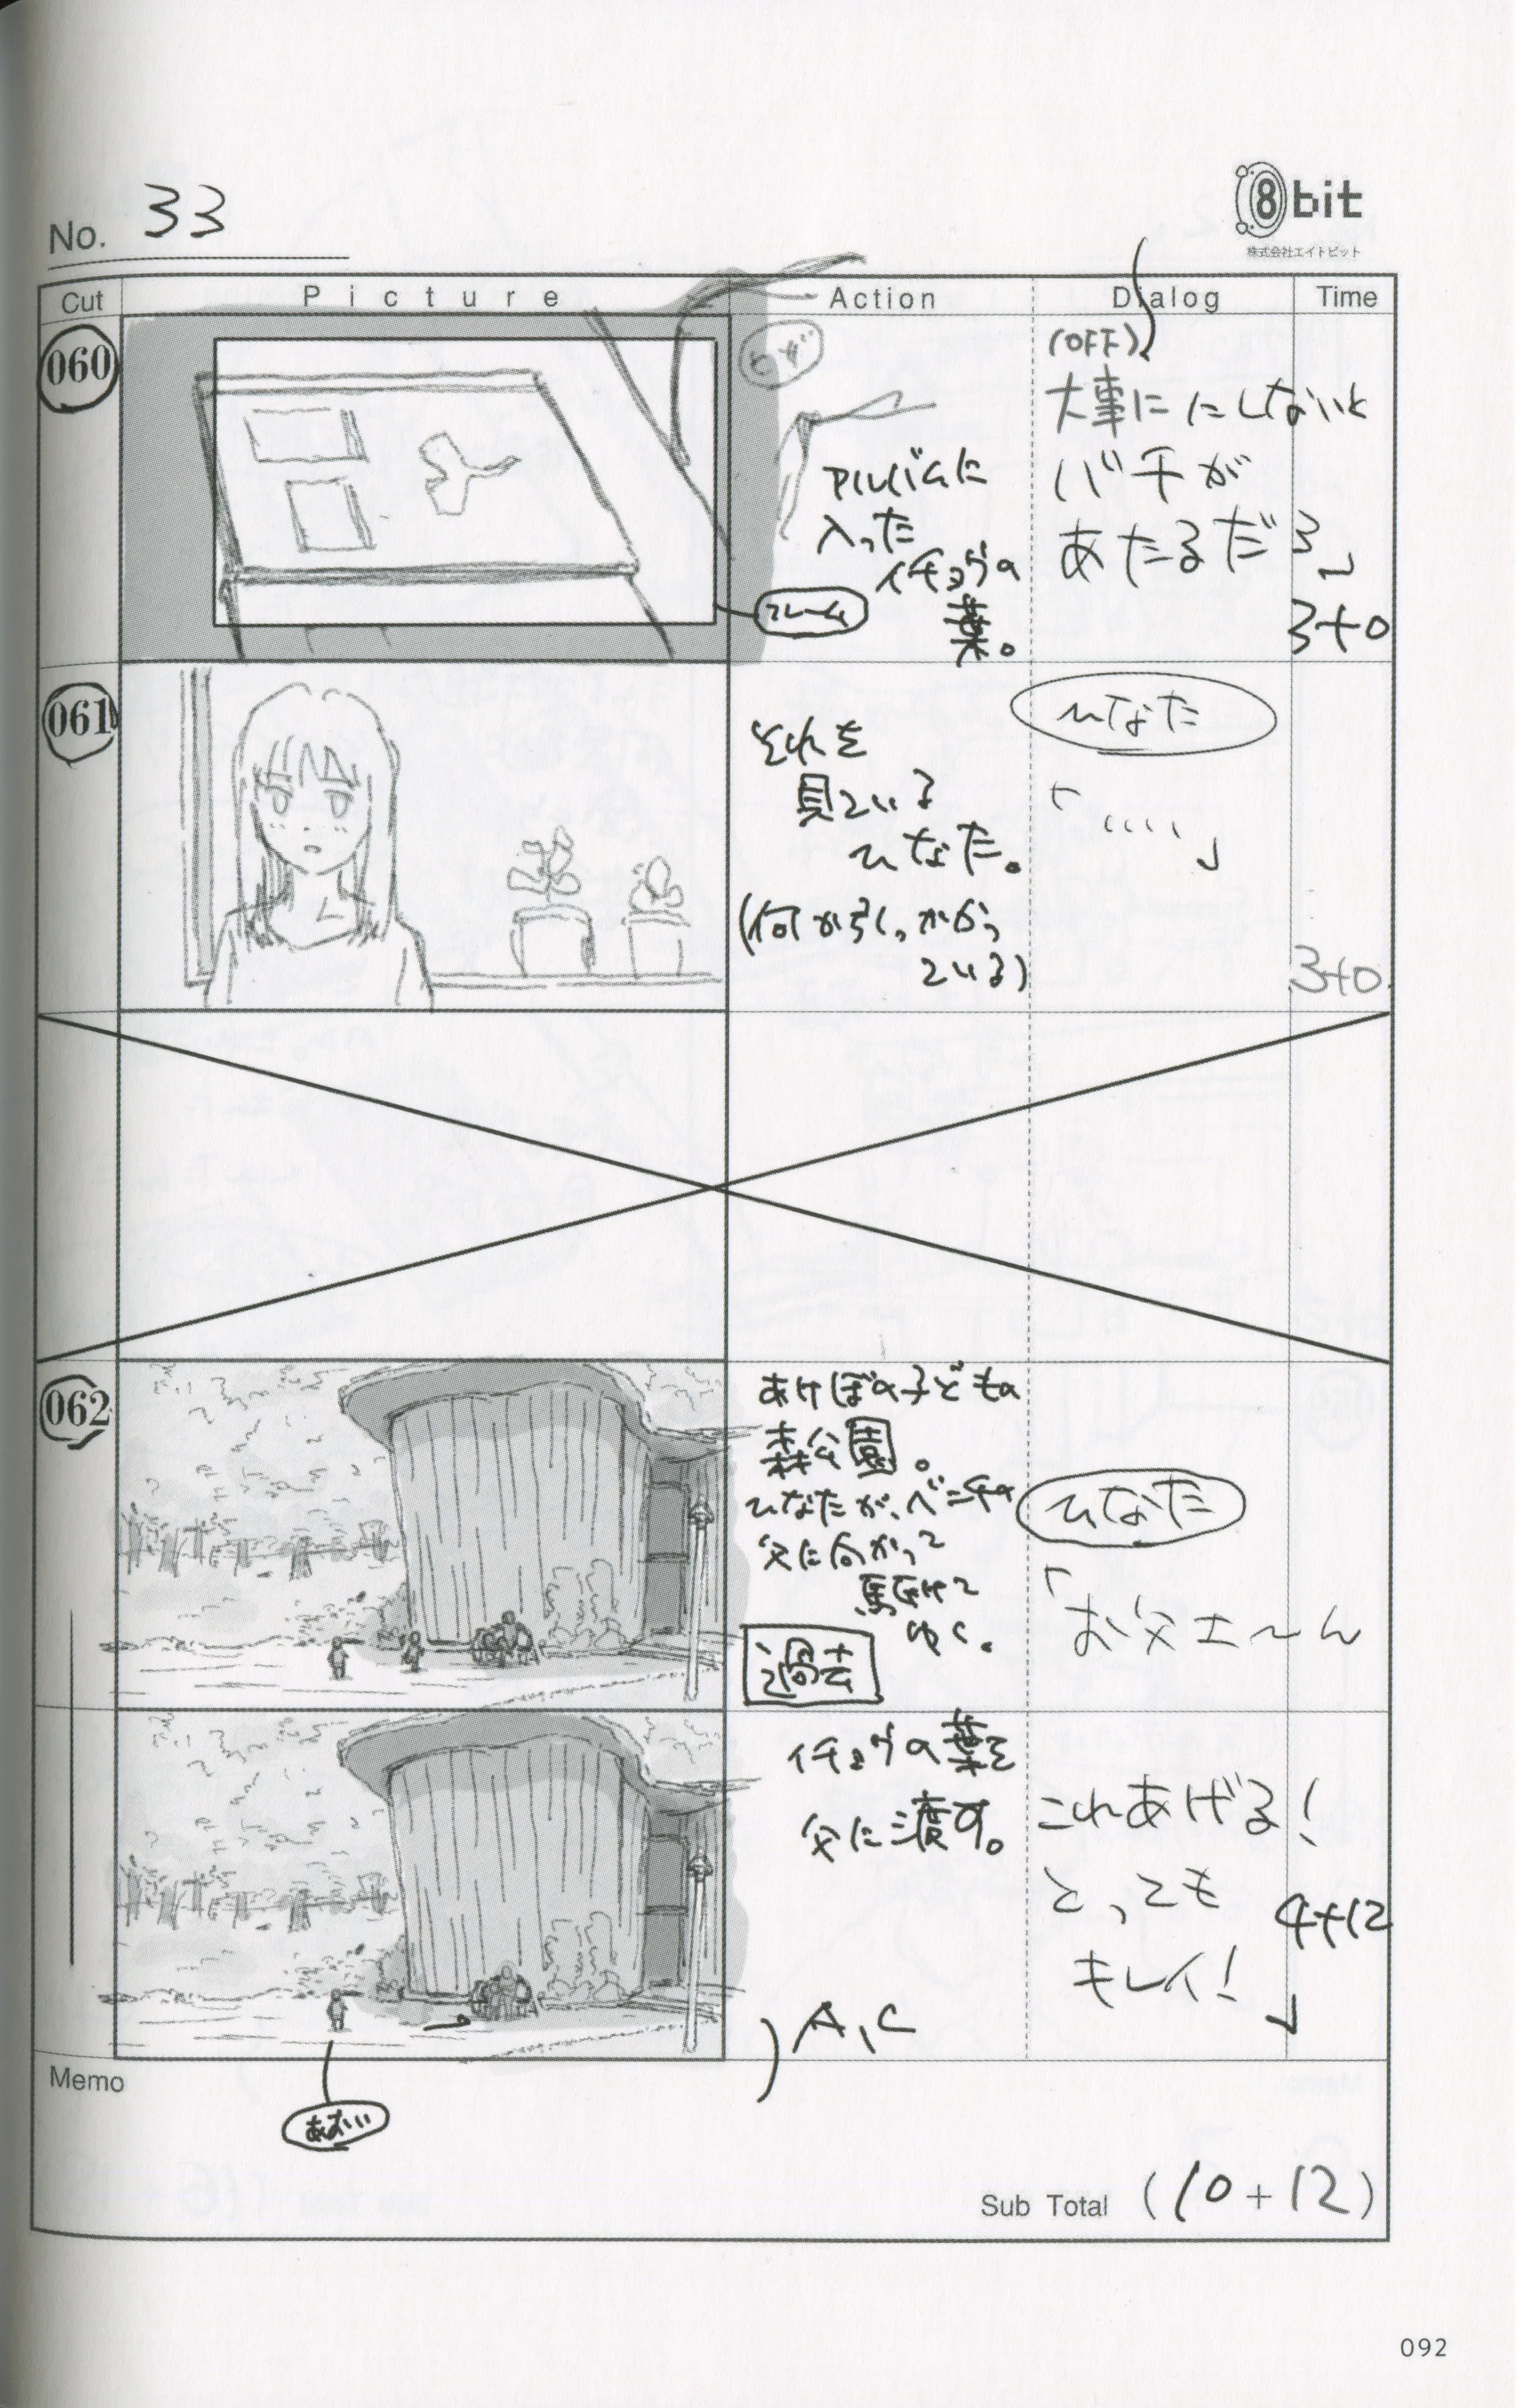 No. 33
8bit
株式会社エイトビット
Cut Picture Action Dialog Time
060
ヒザ
アルバムに
入った
イチョウの
葉。
フレーム
(OFF)
大事ににしないと
バチが
あたるだろ」
3+0
061
それを
見ている
ひなた。
(何か引っかかっ
ている)
ひなた
「‥‥」
3+0
062
あけぼの子どもの
森公園。
ひなたが、ベンチの
父に向かって
駆けて
ゆく。
過去
ひなた
「お父さ〜ん
イチョウの葉を
父に渡す。
A,C
これあげる!
とっても
キレイ!」
4+12
Memo
あおい
Sub Total (10+12)
092